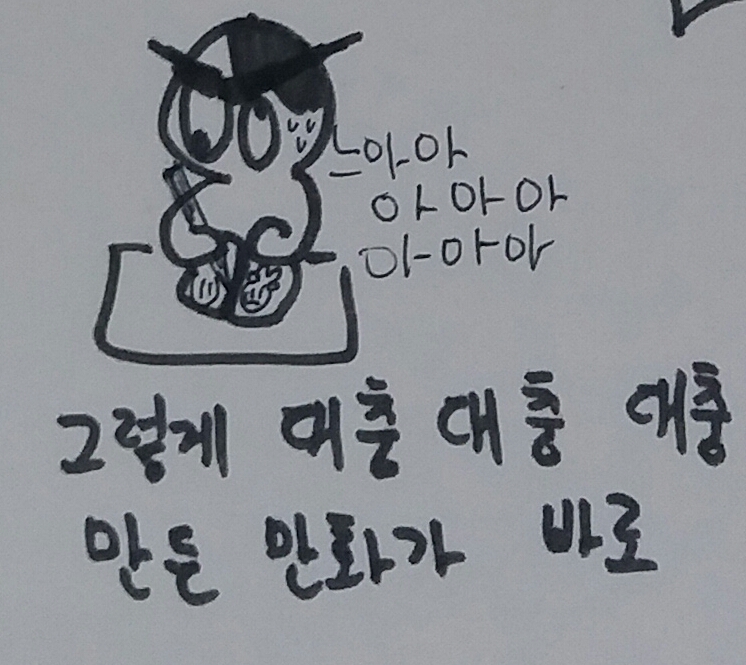 느아아
아아아
아아아
그렇게 대충 대충 대충
만든 만화가 바로